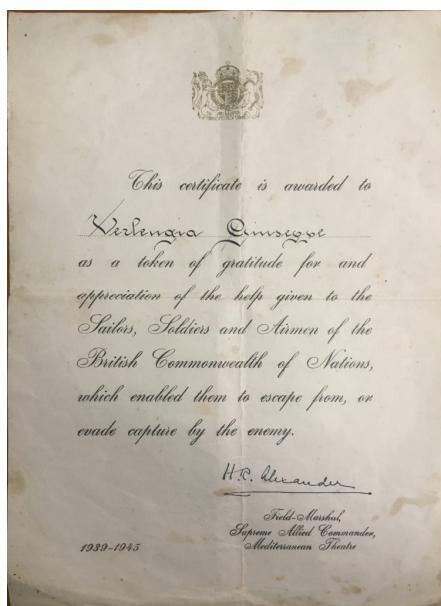 This certificate is awarded to
Verlengia Giuseppe
as a token of gratitude for and
appreciation of the help given to the
Sailors, Soldiers and Airmen of the
British Commonwealth of Nations,
which enabled them to escape from, or
evade capture by the enemy.
H.R. Alexander
Field-Marshal,
Supreme Allied Commander,
1939-1945 Mediterranean Theatre